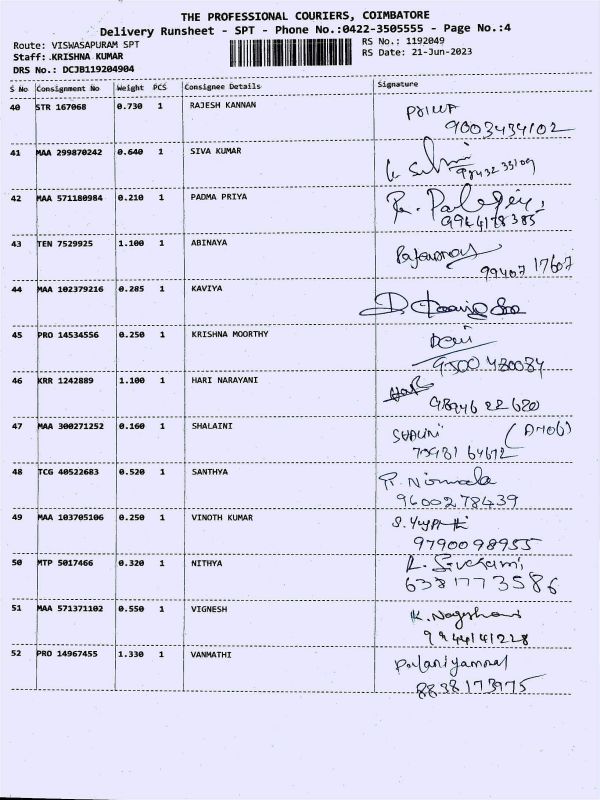 THE PROFESSIONAL COURIERS, COIMBATORE
Delivery Runsheet - SPT - Phone No.:0422-3505555 - Page No.:4
Route: VISWASAPURAM SPT
RS No.: 1192049
Staff: KRISHNA KUMAR
RS Date: 21-Jun-2023
DRS No.: DCJB119204904
S No Consignment No Weight PCS Consignee Details Signature
40 STR 167068 0.730 1 RAJESH KANNAN
9003434102
41 MAA 299870242 0.640 1 SIVA KUMAR
42 MAA 571180984 0.210 1 PADMA PRIYA
9944178385
43 TEN 7529925 1.100 1 ABINAYA
99407 17607
44 MAA 102379216 0.285 1 KAVIYA
45 PRO 14534556 0.250 1 KRISHNA MOORTHY
9500480084
46 KRR 1242889 1.100 1 HARI NARAYANI
98946 22620
47 MAA 300271252 0.160 1 SHALAINI
SHALINI
48 TCG 40522683 0.520 1 SANTHYA R. Nirmala
9600278439
49 MAA 103705106 0.250 1 VINOTH KUMAR
9790098955
50 MTP 5017466 0.320 1 NITHYA
6381773586
51 MAA 571371102 0.550 1 VIGNESH
9944141228
52 PRO 14967455 1.330 1 VANMATHI Palaniyammal
8838173975